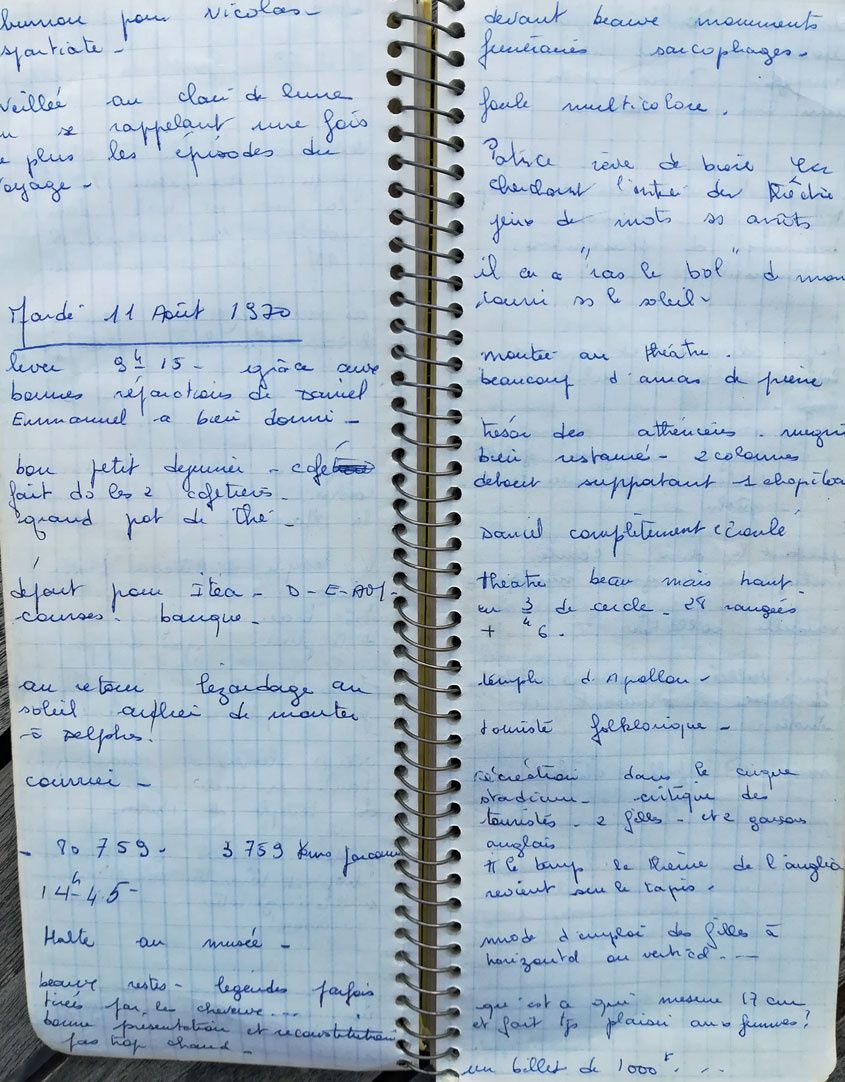 pour Nicolas -
spartiate -
veillée au clair de lune
se rappelant une fois
plus les épisodes du
voyage -
Mardi 11 Août 1970
lever 9h 15 - grâce aux
bonnes de Daniel
Emmanuel a bien dormi -
bon petit dejeuner - café
fait ds les 2 cafetieres -
grand pot de thé -
départ pour Itea - D - E -
courses - banque -
au retour lezardage au
soleil de monter
à Delphes!
courrier -
- 80 759 - 3 759 kms
14h 45 -
Halte au musée -
beaux restes - legendes parfois
tirées par les cheveux...
bonne presentation et reconstitution
pas trop chaud -
devant beaux monuments
funéraires sarcophages -
foule multicolore.
Patrice rêve de biere en
cherchant l'entrée du théâtre
jeux de mots ss arrêts
il en a "ras le bol" de
ss le soleil -
montée au théatre.
beaucoup d'amas de pierre
trésor des athéniens.
bien restauré - 2 colonnes
debout supportant 1
Daniel complètement écroulé
théatre beau mais haut -
en 3/4 de cercle - 28 rangées
+ 6.
temple d'Apollon -
touriste folklorique -
récréation dans le cirque
stadium - critique des
touristes - 2 filles - et 2 garçons
anglais
tt le temps le thème de
revient sur le tapis.
mode d'emploi des filles à
horizontal ou vertical - --
qu'est a qui mesure 17 cm
et fait tjs plaisir aux femmes?
un billet de 1000F. ..